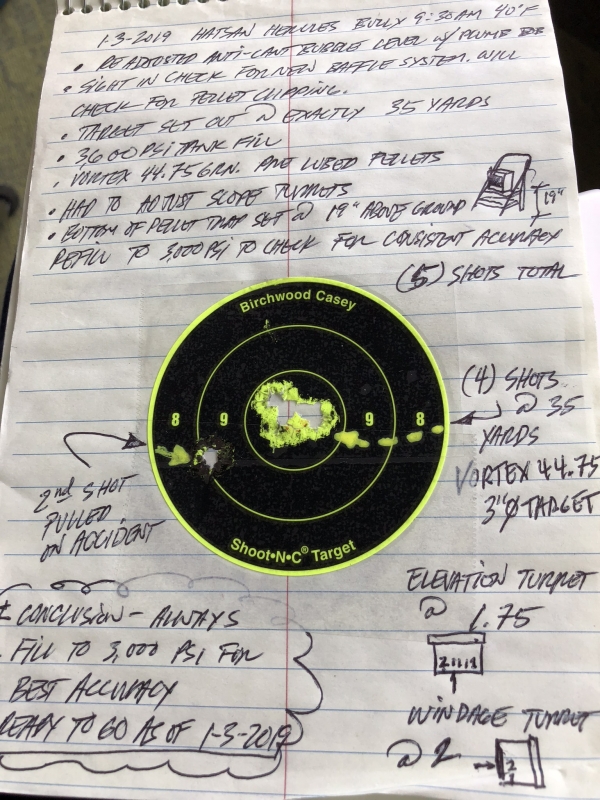 1-3-2019 HATSAN HERCULES BULLY 9:30AM 40°F
• READJUSTED ANTI-CANT BUBBLE LEVEL W/ PLUMB BOB
• SIGHT IN CHECK FOR NEW BAFFLE SYSTEM. WILL
CHECK FOR PELLET CLIPPING.
• TARGET SET OUT @ EXACTLY 35 YARDS
• 3600 PSI TANK FILL
• VORTEX 44.75 GRN. LUBED PELLETS
• HAD TO ADJUST SCOPE TURRETS
• BOTTOM OF PELLET TRAP SET @ 19" ABOVE GROUND
19"
REFILL TO 3,000 PSI TO CHECK FOR CONSISTENT ACCURACY
(5) SHOTS TOTAL
Birchwood Casey
8 9 9 8
Shoot•N•C® Target
(4) SHOTS
@ 35
YARDS
VORTEX 44.75
3"Ø TARGET
2nd SHOT
PULLED
ON ACCIDENT
ELEVATION TURRET
@ 1.75
2
WINDAGE TURRET
@ 2
2
CONCLUSION - ALWAYS
FILL TO 3,000 PSI FOR
BEST ACCURACY
READY TO GO AS OF 1-3-2019